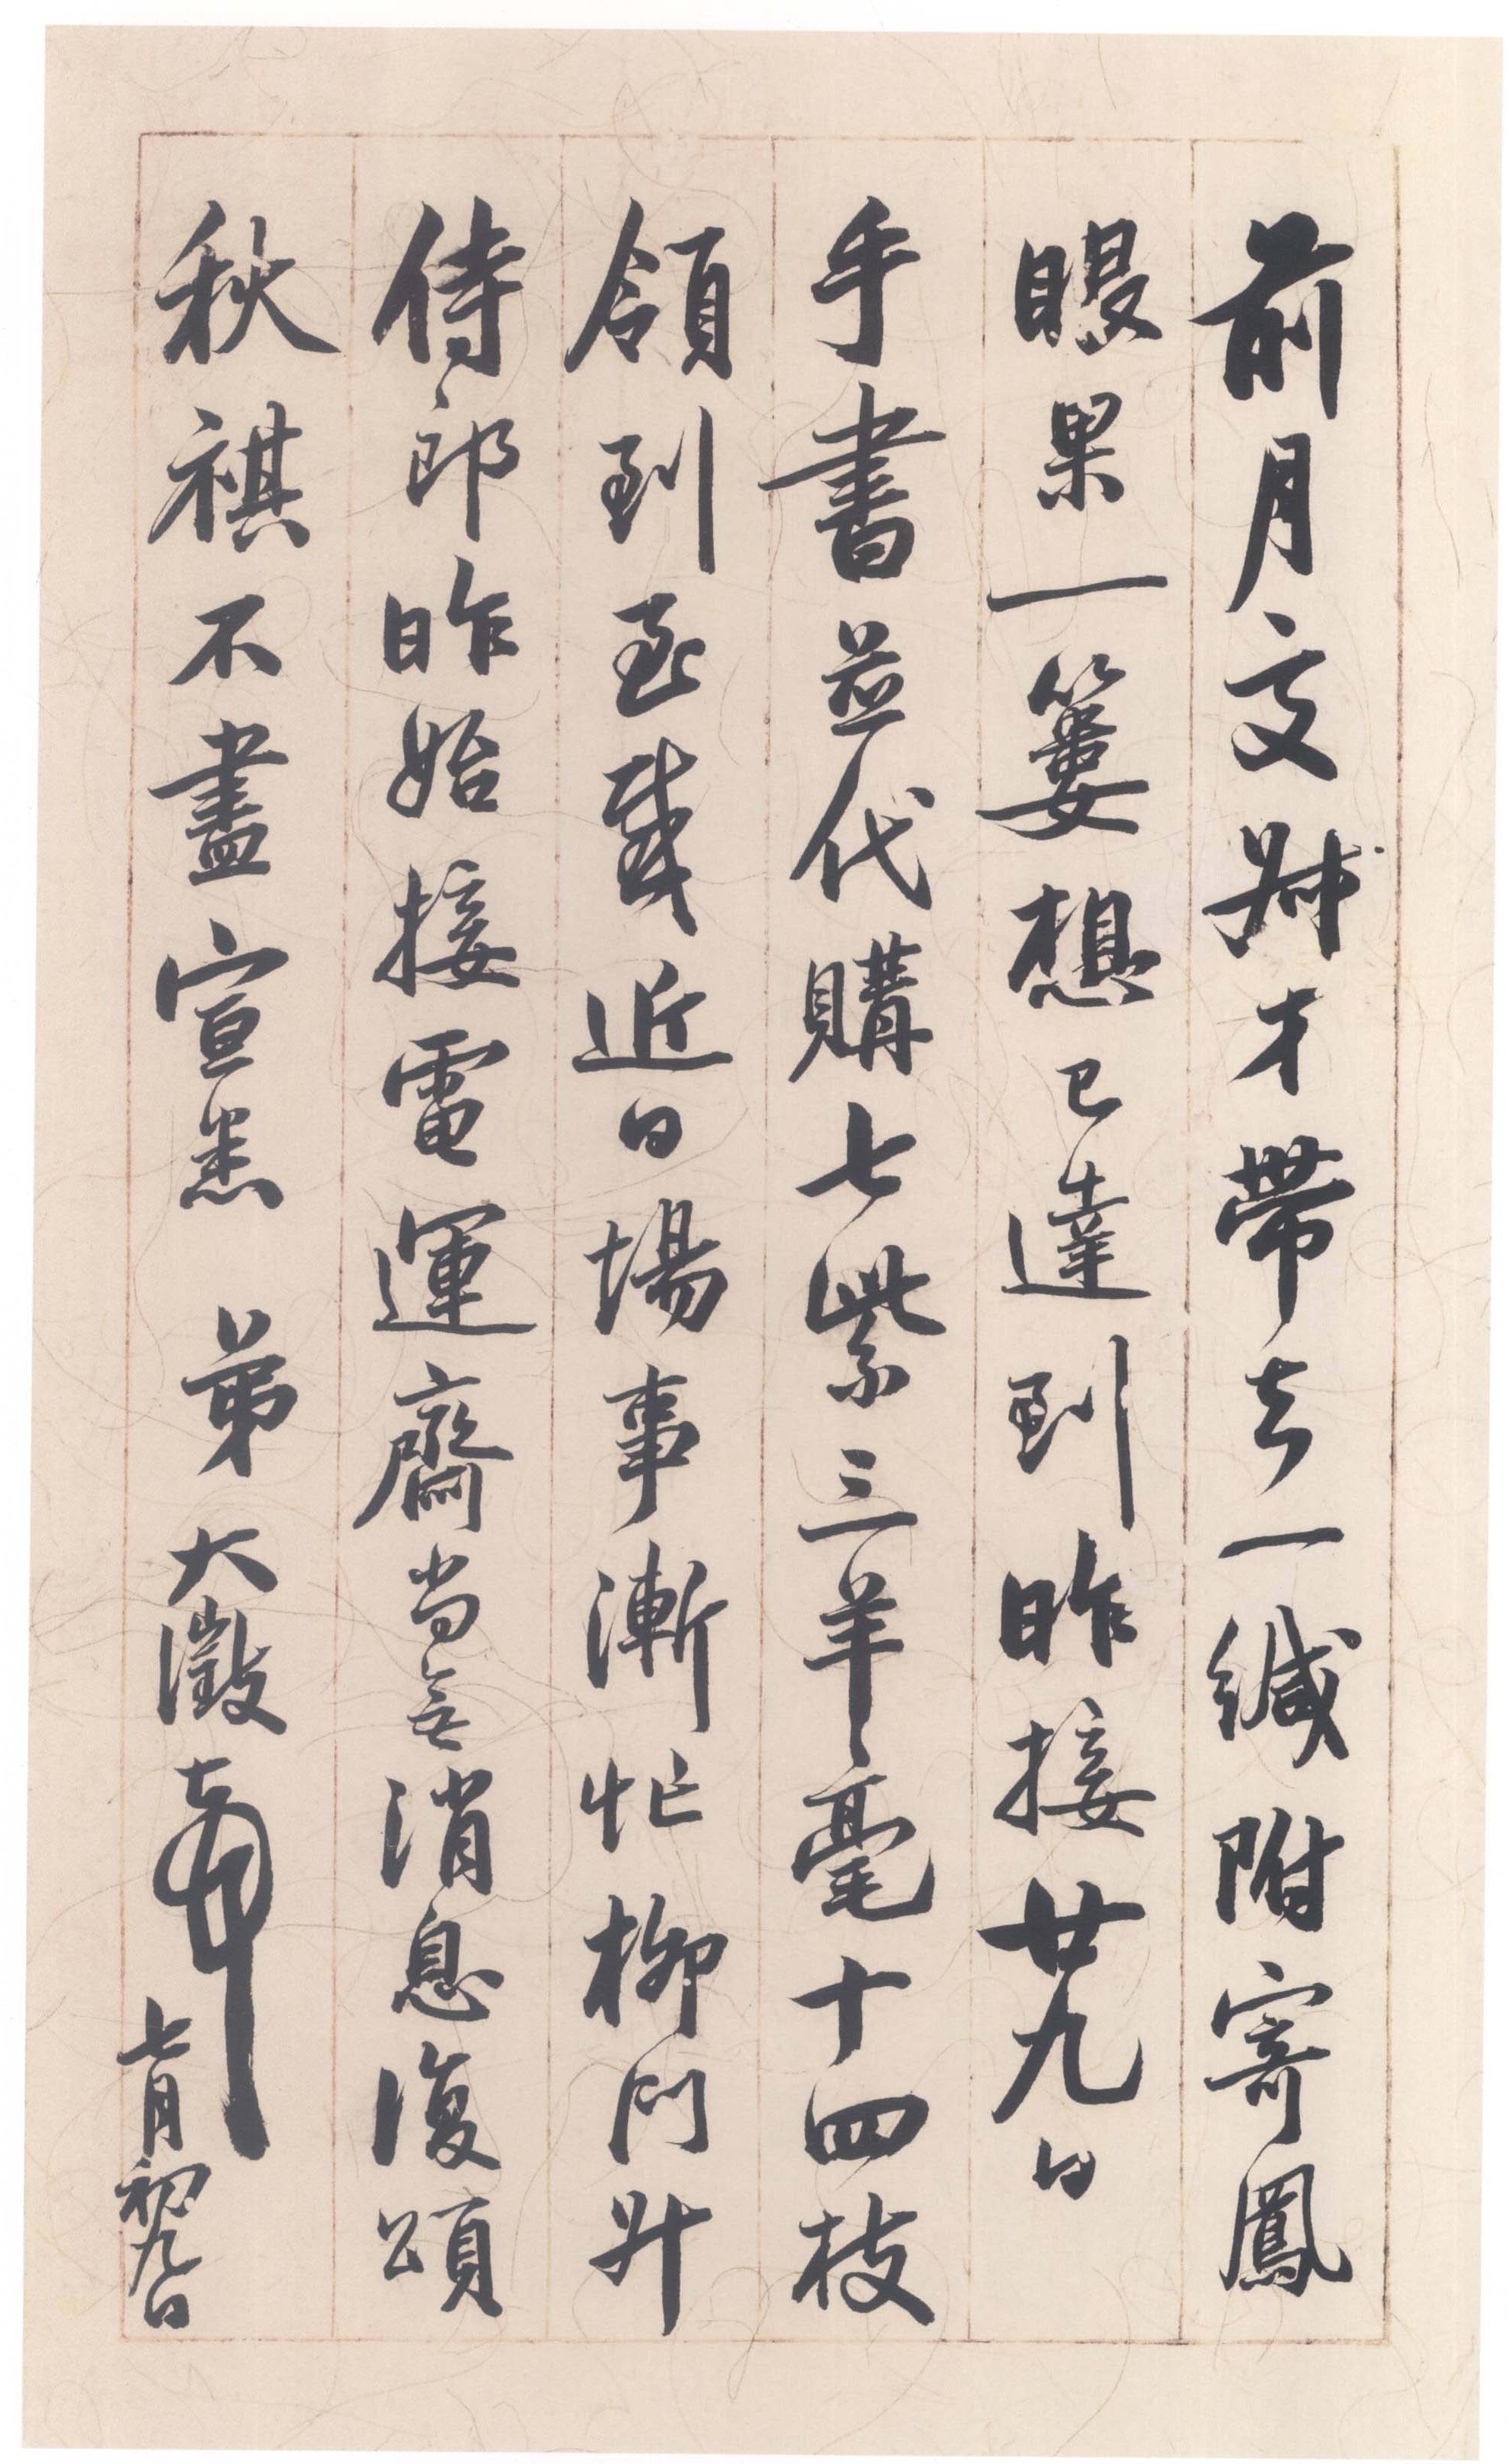 前月交才帶去一緘附寄鳳
眼果一簍想已達到昨接廿九日
手書並代購七紫三羊毫十四枝
領到至感近日場事漸忙柳門升
侍郎昨始接電運齋尚無消息復頌
秋祺不盡宣悉 弟大澂頓首 七月初九日